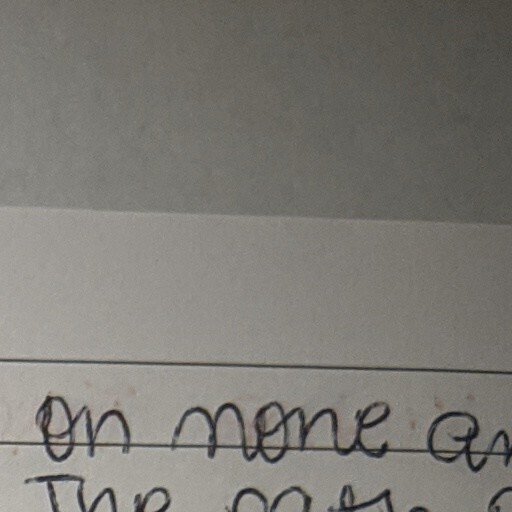 on mone an
The